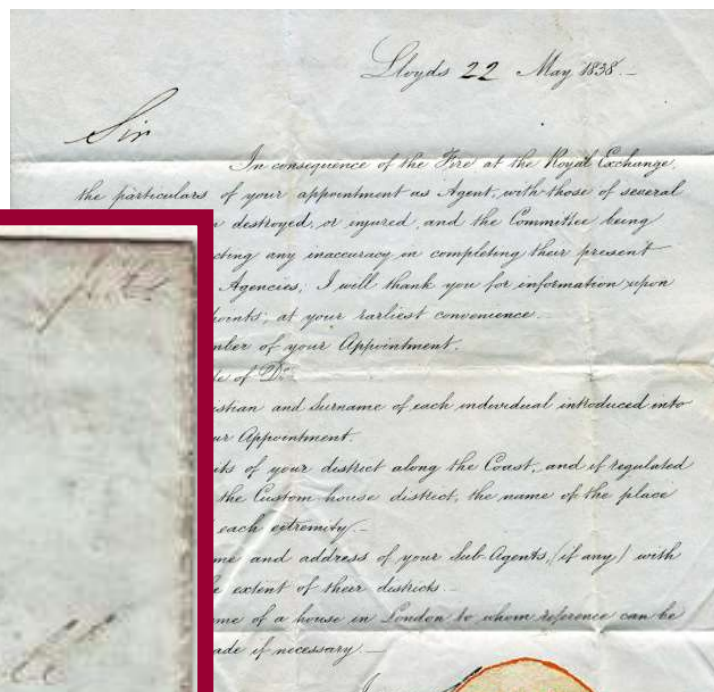 Lloyds 22 May 1838.-
Sir
In consequence of the Fire at the Royal Exchange,
the particulars of your appointment as Agent, with those of several
destroyed, or injured, and the Committee being
cting any inaccuracy in completing their present
Agencies; I will thank you for information upon
points; at your earliest convenience.
mber of your Appointment.
te of Do
istian and Surname of each individual introduced into
ur Appointment.
its of your district along the Coast, and if regulated
the Custom house district, the name of the place
each extremity.-
me and address of your Sub-Agents, (if any) with
e extent of their districts.-
me of a house in London to whom reference can be
ade if necessary.-